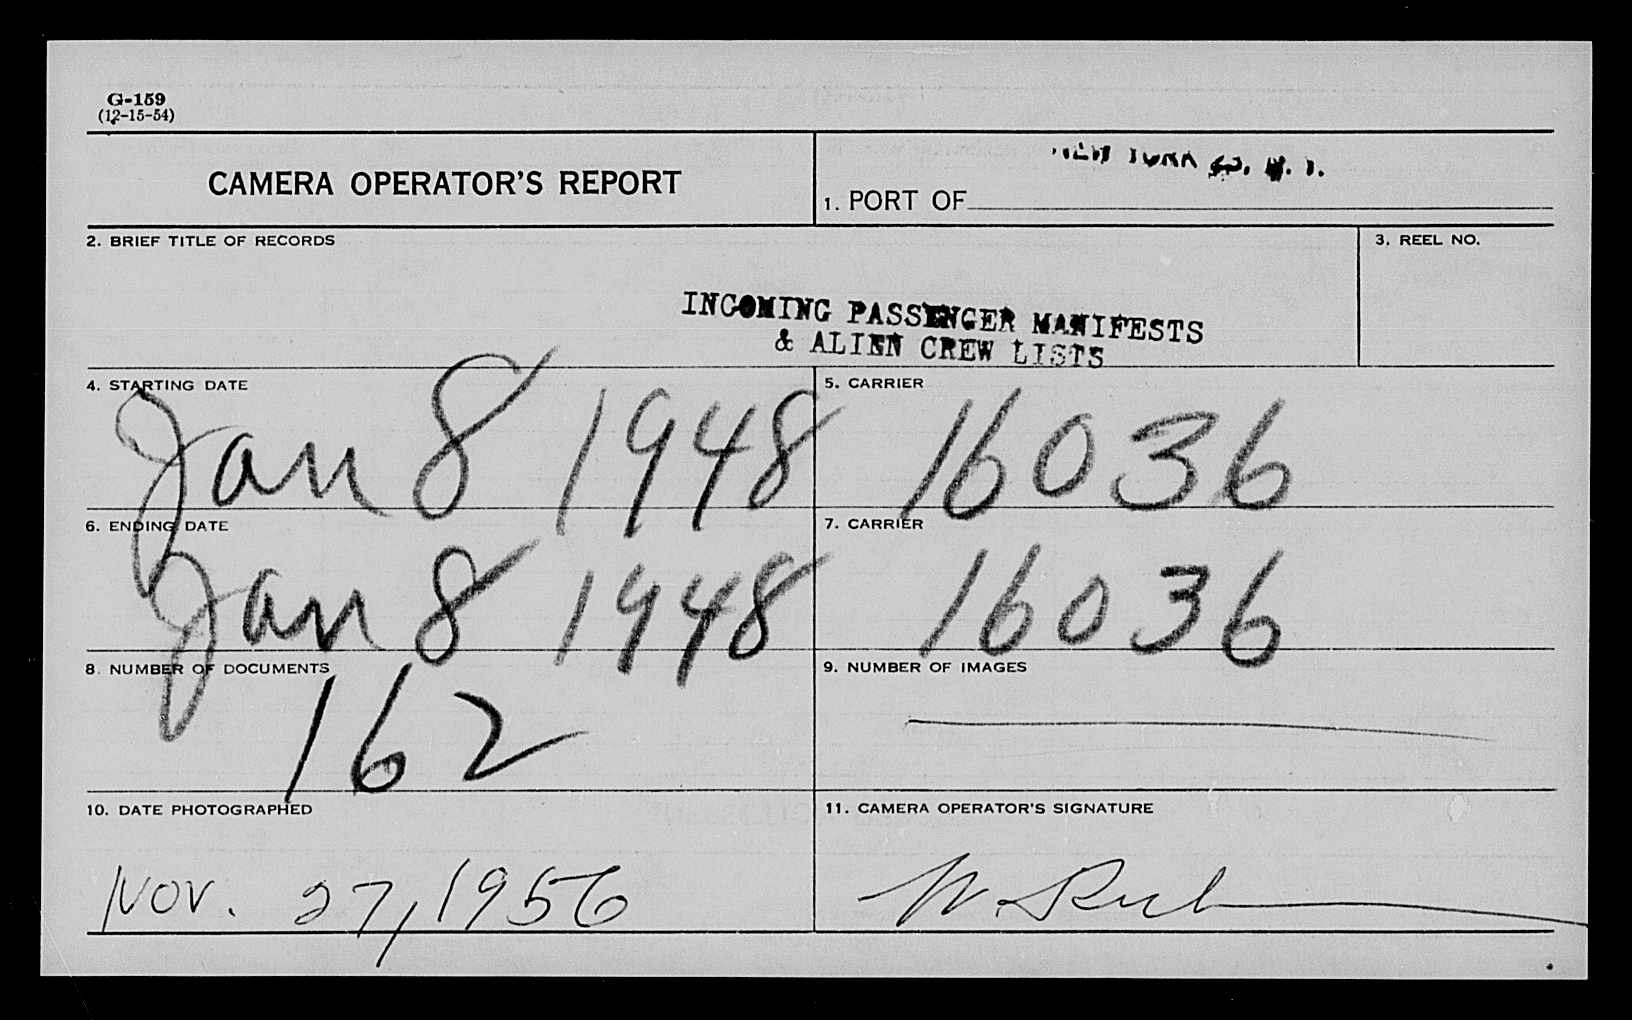 G-159
(12-15-54)
CAMERA OPERATOR'S REPORT
NEW YORK
1. PORT OF
2. BRIEF TITLE OF RECORDS
3. REEL NO.
INCOMING PASSENGER MANIFESTS
& ALIEN CREW LISTS
4. STARTING DATE
Jan 8 1948
5. CARRIER
16036
6. ENDING DATE
Jan 8 1948
7. CARRIER
16036
8. NUMBER OF DOCUMENTS
162
9. NUMBER OF IMAGES
10. DATE PHOTOGRAPHED
Nov. 27, 1956
11. CAMERA OPERATOR'S SIGNATURE
W.